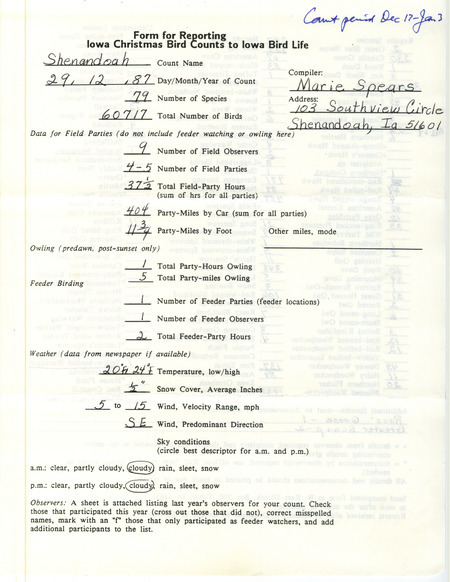 Count period Dec 17-Jan 3
Form for Reporting
Iowa Christmas Bird Counts to Iowa Bird Life
Shenandoah Count Name
29, 12, 87 Day/Month/Year of Count
79 Number of Species
60717 Total Number of Birds
Compiler:
Marie Spears
Address:
103 Southview Circle
Shenandoah, Ia 51601
Data for Field Parties (do not include feeder watching or owling here)
9 Number of Field Observers
4-5 Number of Field Parties
37½ Total Field-Party Hours
(sum of hrs for all parties)
404 Party-Miles by Car (sum for all parties)
11¾ Party-Miles by Foot Other miles, mode
Owling (predawn, post-sunset only)
1 Total Party-Hours Owling
5 Total Party-miles Owling
Feeder Birding
1 Number of Feeder Parties (feeder locations)
1 Number of Feeder Observers
2 Total Feeder-Party Hours
Weather (data from newspaper if available)
20°F 24°F Temperature, low/high
½" Snow Cover, Average Inches
5 to 15 Wind, Velocity Range, mph
SE Wind, Predominant Direction
Sky conditions
(circle best descriptor for a.m. and p.m.)
a.m.: clear, partly cloudy, cloudy, rain, sleet, snow
p.m.: clear, partly cloudy, cloudy, rain, sleet, snow
Observers: A sheet is attached listing last year's observers for your count. Check
those that participated this year (cross out those that did not), correct misspelled
names, mark with an "f" those that only participated as feeder watchers, and add
additional participants to the list.